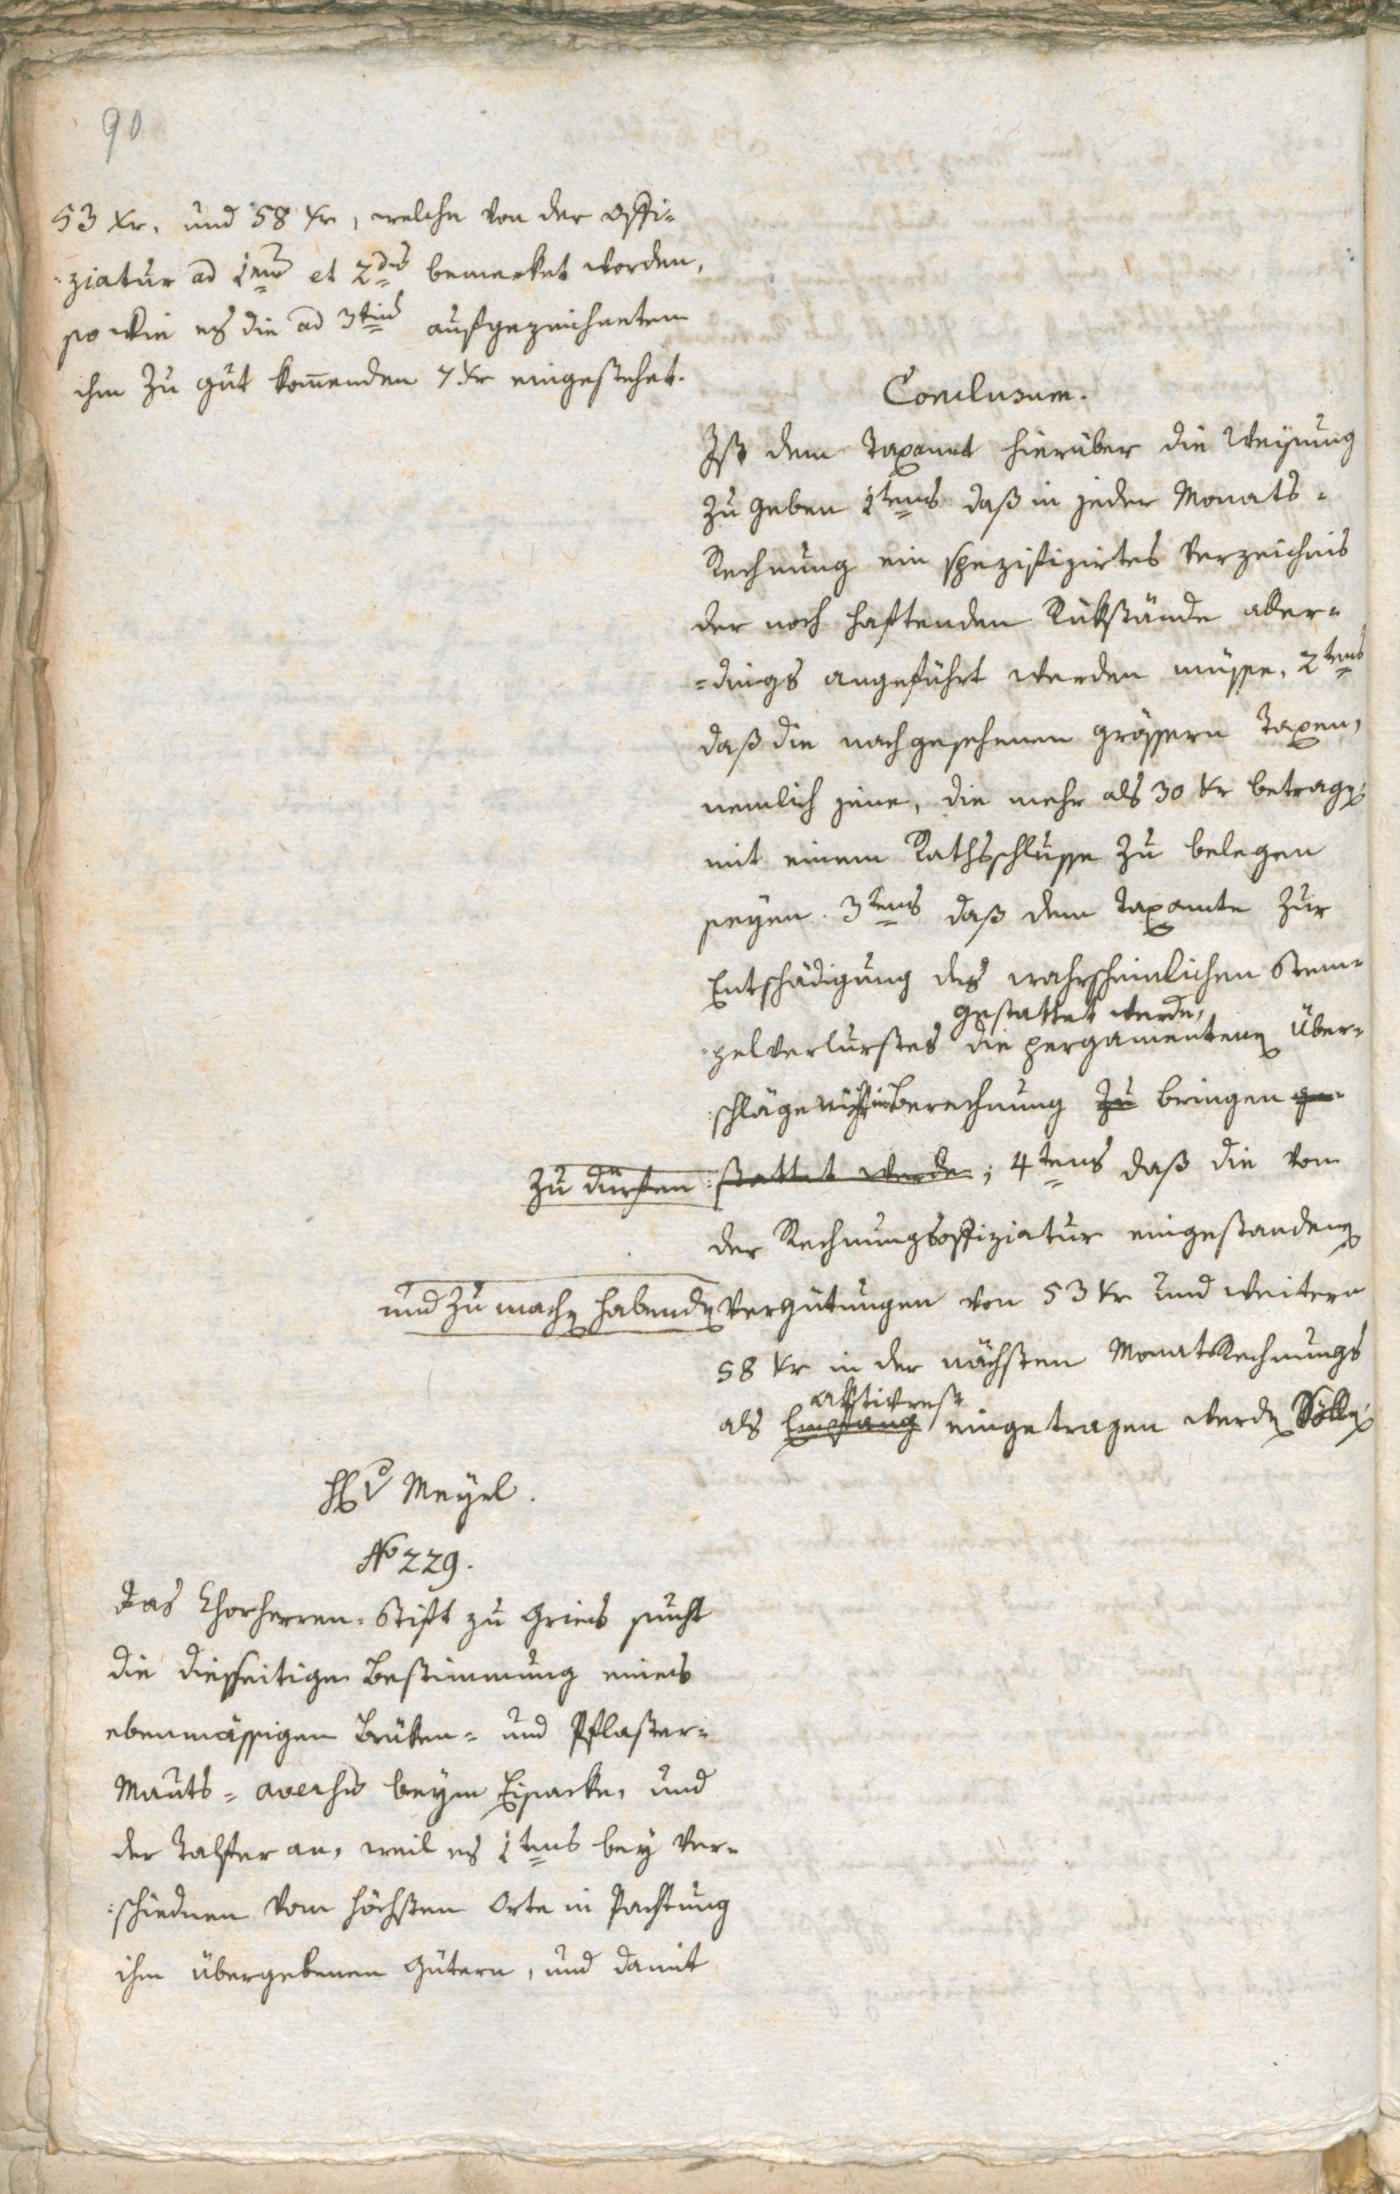 90
53 Xr. und 58 Xr, welche von der Offi-
ziatur ad 1mo et 2do bemerket worden,
so wie es die ad 3tium aufgezeichneten
ihm zu gut kom̄enden 7 Xr eingestehet.
Conclusum.
Ist dem Taxamt hierüber die Weisung
zu geben 1tens daß in jeder Monats-
Rechnung ein spezifizirtes Verzeichnis
der noch haftenden Rükstände aller-
dings angeführt werden müsse, 2tens
daß die nachgesehenen grössern Taxen,
nemlich jene, die mehr als 30 Xr betragen
mit einem Rathsschlusse zu belegen
seyen. 3tens daß dem Taxamte zur
Entschädigung des wahrscheinlichen Stem-
gestattet werde,
pelverlurstes die pergamentenen Über-
schläge nicht in Berechnung zu bringen ge-
zu dürfen stattet werde; 4tens daß die von
der Rechnungsoffiziatur eingestandenen
und zu machen habenden Vergütungen von 53 Xr und weitere
58 Xr in der nächsten Monat Rechnungs
aktivrest
als Empfang eingetragen werden Sollen.
H v Meyel.
No 229.
Das Chorherren-Stift zu Gries sucht
die diesseitige Bestimmung eines
ebenmässigen Brüken- und Pflaster-
Mauts-aversio beym Eisacke, und
der Talfer an, weil es 1tens bey ver-
schiednen vom höchsten Orte in Pachtung
ihm übergebenen Gütern, und damit